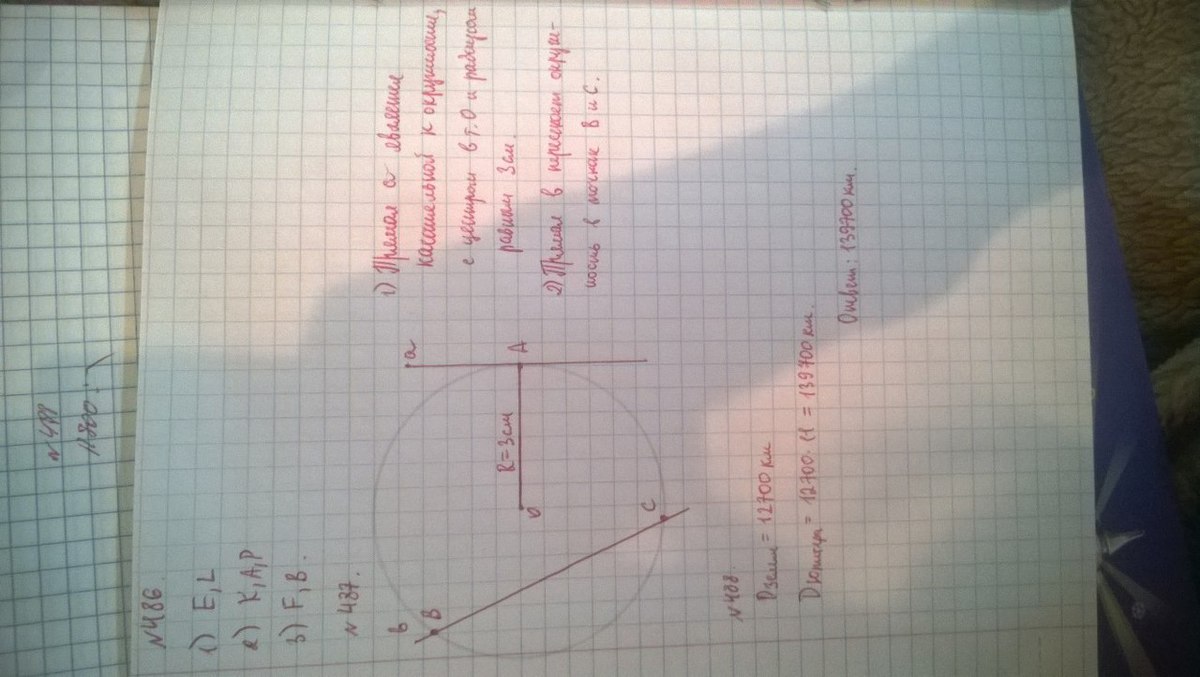 N 489
N486.
1) E, L
2) K, A, P
3) F, B.
N 487.
a
A
R=3см
O
B
в
C
1) Прямая а является
касательной к окружности,
с центром в т. О и радиусом
равным 3см.
2) Прямая в пересекает окруж-
ность в точках В и С.
N488.
Dземли = 12700 км
Dюпитера = 12700 · 11 = 139700 км.
Ответ: 139700 км.